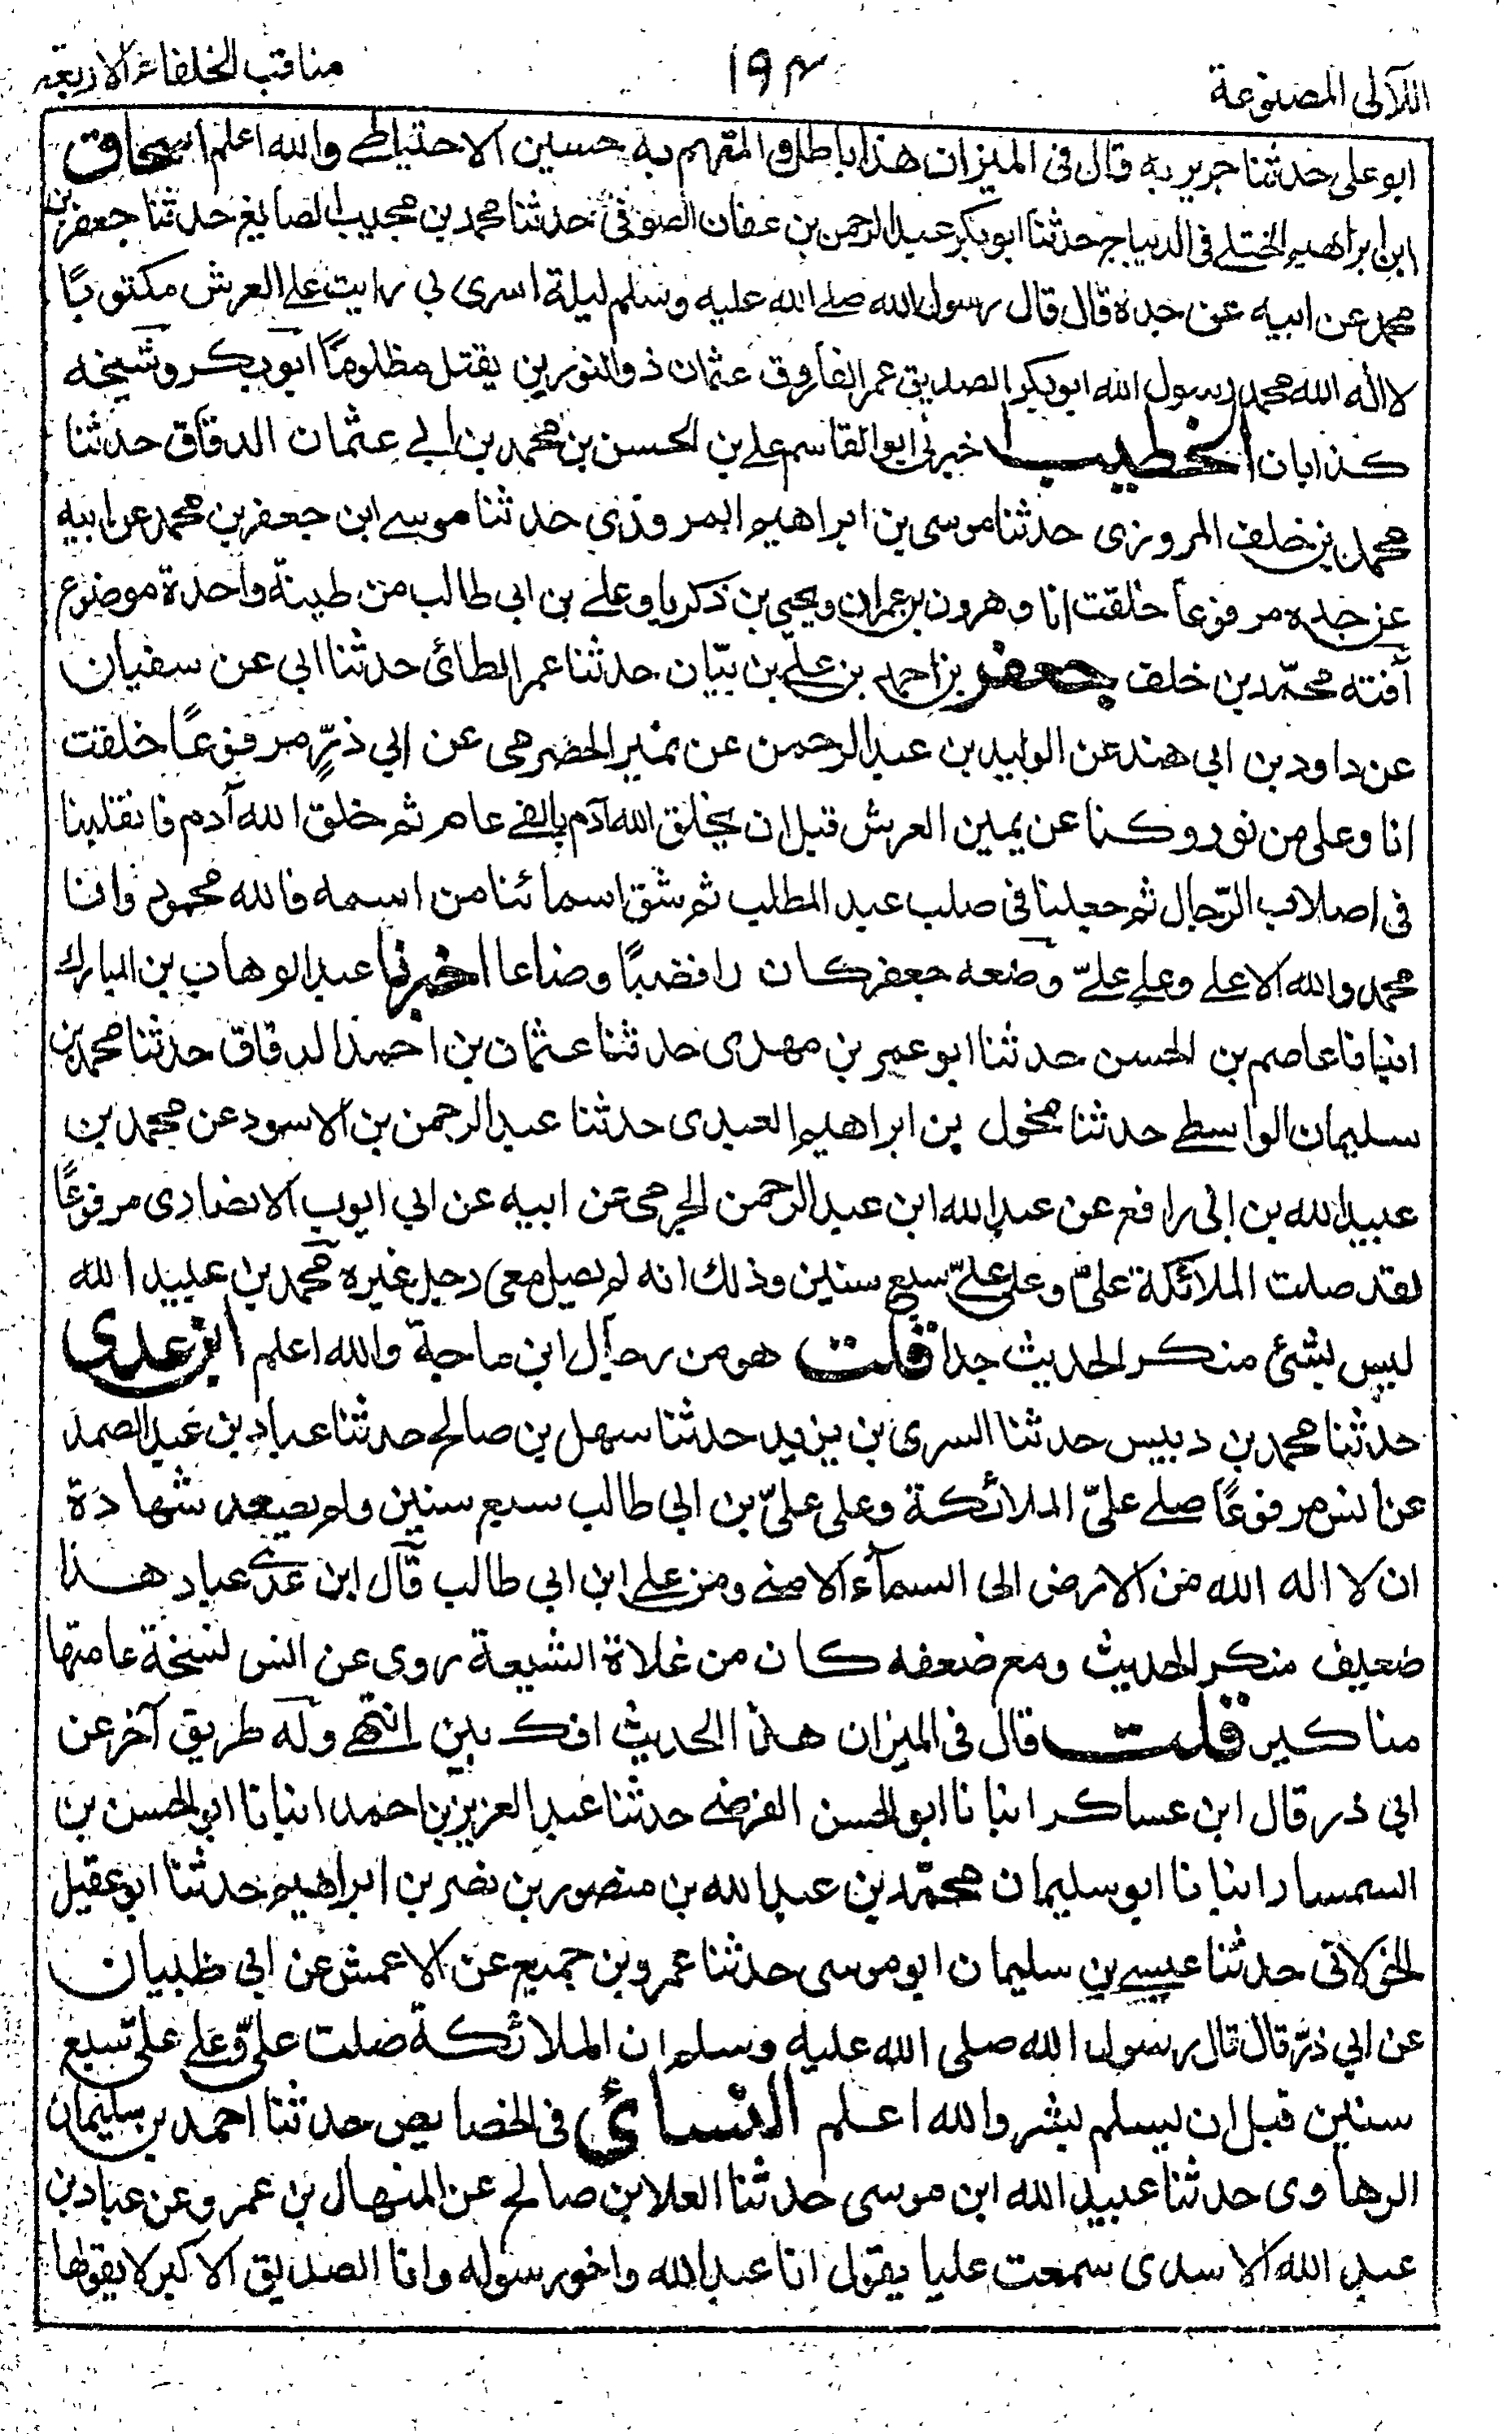 اللآلى المصنوعة
١٩٣
مناقب الخلفاء الاربعة
ابو على حدثنا جرير به قال فى الميزان هذا باطل والمتهم به حسين الاحتياطے والله اعلم اسحاق
ابن ابراهيم الختلے فى الديباج حدثنا ابو بكر عبد الرحمن بن عفان الصوفى حدثنا محمد بن مجيب الصايغ حدثنا جعفر بن
محمد عن ابيه عن جده قال قال رسول الله صلے الله عليه وسلم ليلة اسرى بى رايت علے العرش مكتوبًا
لا اله الا الله محمد رسول الله ابو بكر الصديق عمر الفاروق عثمان ذو النورين يقتل مظلومًا ابو بكر وشيخه
كذابان الخطيب اخبرنى ابو القاسم علے بن الحسن بن محمد بن ابے عثمان الدقاق حدثنا
محمد بن خلف المروزى حدثنا موسى بن ابراهيم المروذى حدثنا موسے ابن جعفر بن محمد عن ابيه
عن جده مرفوعاً خلقت انا وهرون بن عمران ويحيى بن ذكريا وعلے بن ابى طالب من طينة واحدة موضوع
آفته محمّد بن خلف جعفر بن احمد بن علے بن بيّان حدثنا عمر الطائى حدثنا ابى عن سفيان
عن داود بن ابى هند عن الوليد بن عبد الرحمن عن نمير الحضرمى عن ابي ذرٍّ مرفوعًا خلقت
انا وعلى من نور وكنا عن يمين العرش قبل ان يخلق الله آدم بالفے عام ثم خلق الله آدم فانقلبنا
فى اصلاب الرّجال ثم جعلنا فى صلب عبد المطلب ثم شق اسمائنا من اسمه فالله محمود وانا
محمد والله الاعلے وعلے علىّ وضعه جعفر كان رافضيًا وضاعا اخبرنا عبد الوهاب بن المبارك
انبانا عاصم بن الحسن حدثنا ابو عمر بن مهدى حدثنا عثمان بن احمد الدقاق حدثنا محمد بن
سليمان الواسطے حدثنا مخول بن ابراهيم العبدى حدثنا عبد الرحمن بن الاسود عن محمد بن
عبيد الله بن ابى رافع عن عبد الله ابن عبد الرحمن الحرمى عن ابيه عن ابي ايوب الانصارى مرفوعًا
لقد صلت الملائكة علىّ وعلى علىّ سبع سنين وذلك انه لم يصل معى رجل غيره محمد بن عبيد الله
ليس بشئ منكر الحديث جدا قلت هو من رجال ابن ماجة والله اعلم ابن عدى
حدثنا محمد بن دبيس حدثنا السرى بن يزيد حدثنا سهل بن صالح حدثنا عباد بن عبد الصمد
عن انس مرفوعًا صلے علىّ الملائكة وعلى علىّ بن ابى طالب سبع سنين ولم يصعد شهادة
ان لا اله الا الله من الارض الى السماء الا منى ومن علے ابن ابى طالب قال ابن عدى عباد هذا
ضعيف منكر الحديث ومع ضعفه كان من غلاة الشيعة روى عن انس نسخة عامتها
مناكير قلت قال فى الميزان هذا الحديث افك بين انتهے وله طريق آخر عن
ابى ذر قال ابن عساكر انبانا ابو الحسن الفرضے حدثنا عبد العزيز بن احمد انبانا ابى الحسن بن
السمسار انبانا ابو سليمان محمّد بن عبد الله بن منصور بن نصر بن ابراهيم حدثنا ابو عقيل
الخولانى حدثنا عيسے بن سليمان ابو موسى حدثنا عمرو بن جميع عن الاعمش عن ابى ظبيان
عن ابي ذرّ قال قال رسول الله صلى الله عليه وسلم ان الملائكة صلت علىّ وعلے علىّ سبع
سنين قبل ان يسلم بشر والله اعلم النسائ فى الخصايص حدثنا احمد بن سليمان
الرهاوى حدثنا عبيد الله ابن موسى حدثنا العلا بن صالح عن المنهال بن عمرو عن عباد بن
عبد الله الاسدى سمعت عليا يقول انا عبد الله واخو رسوله وانا الصديق الاكبر لا يقولها